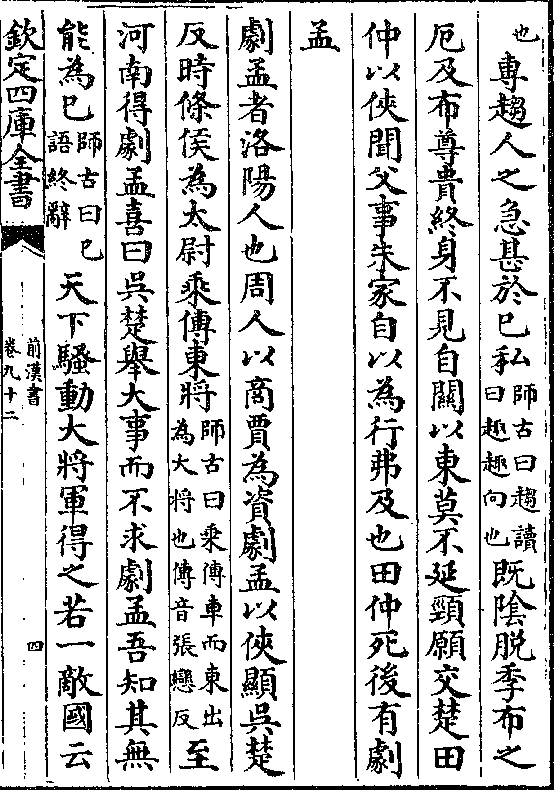 也專趨人之急甚於已私師古曰趨讀曰趣趣向也既陰脱季布之
厄及布尊貴終身不見自關以東莫不延頸願交楚田
仲以俠聞父事朱家自以為行弗及也田仲死後有劇
孟
劇孟者洛陽人也周人以商賈為資劇孟以俠顯吳楚
反時條侯為太尉乘傳東將師古曰乘傳車而東出為大將也傳音張戀反至
河南得劇孟喜曰吳楚舉大事而不求劇孟吾知其無
能為已師古曰已語終辭天下騷動大將軍得之若一敵國云
欽定四庫全書
前漢書
卷九十二
四